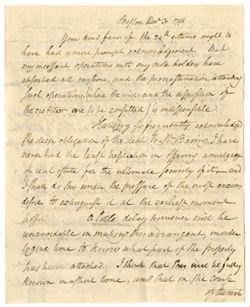 Boston Decr 30 1798
Your kind favor of the 24th
have had a more prompt acknowledgement. But
my incessant operations with my note holders have
absorbed all my time, and the procrastination attending
such operations where the wine and the disposition of
the creditor are to be consulted is indispensible.
Having so frequently acknowledged
the deep obligation of the debt to Mr. I have
never had the least hesitation in offering a mortgage
of real estate for the ultimate security of it — and
I shall do this under the pressure of the most anxious
desire to extinguish it at the earliest moment
possible. A little delay however will be
unavoidable in making this arrangement, in order
to give time to know what part of the property
has been attached. I think that this will be fully
known